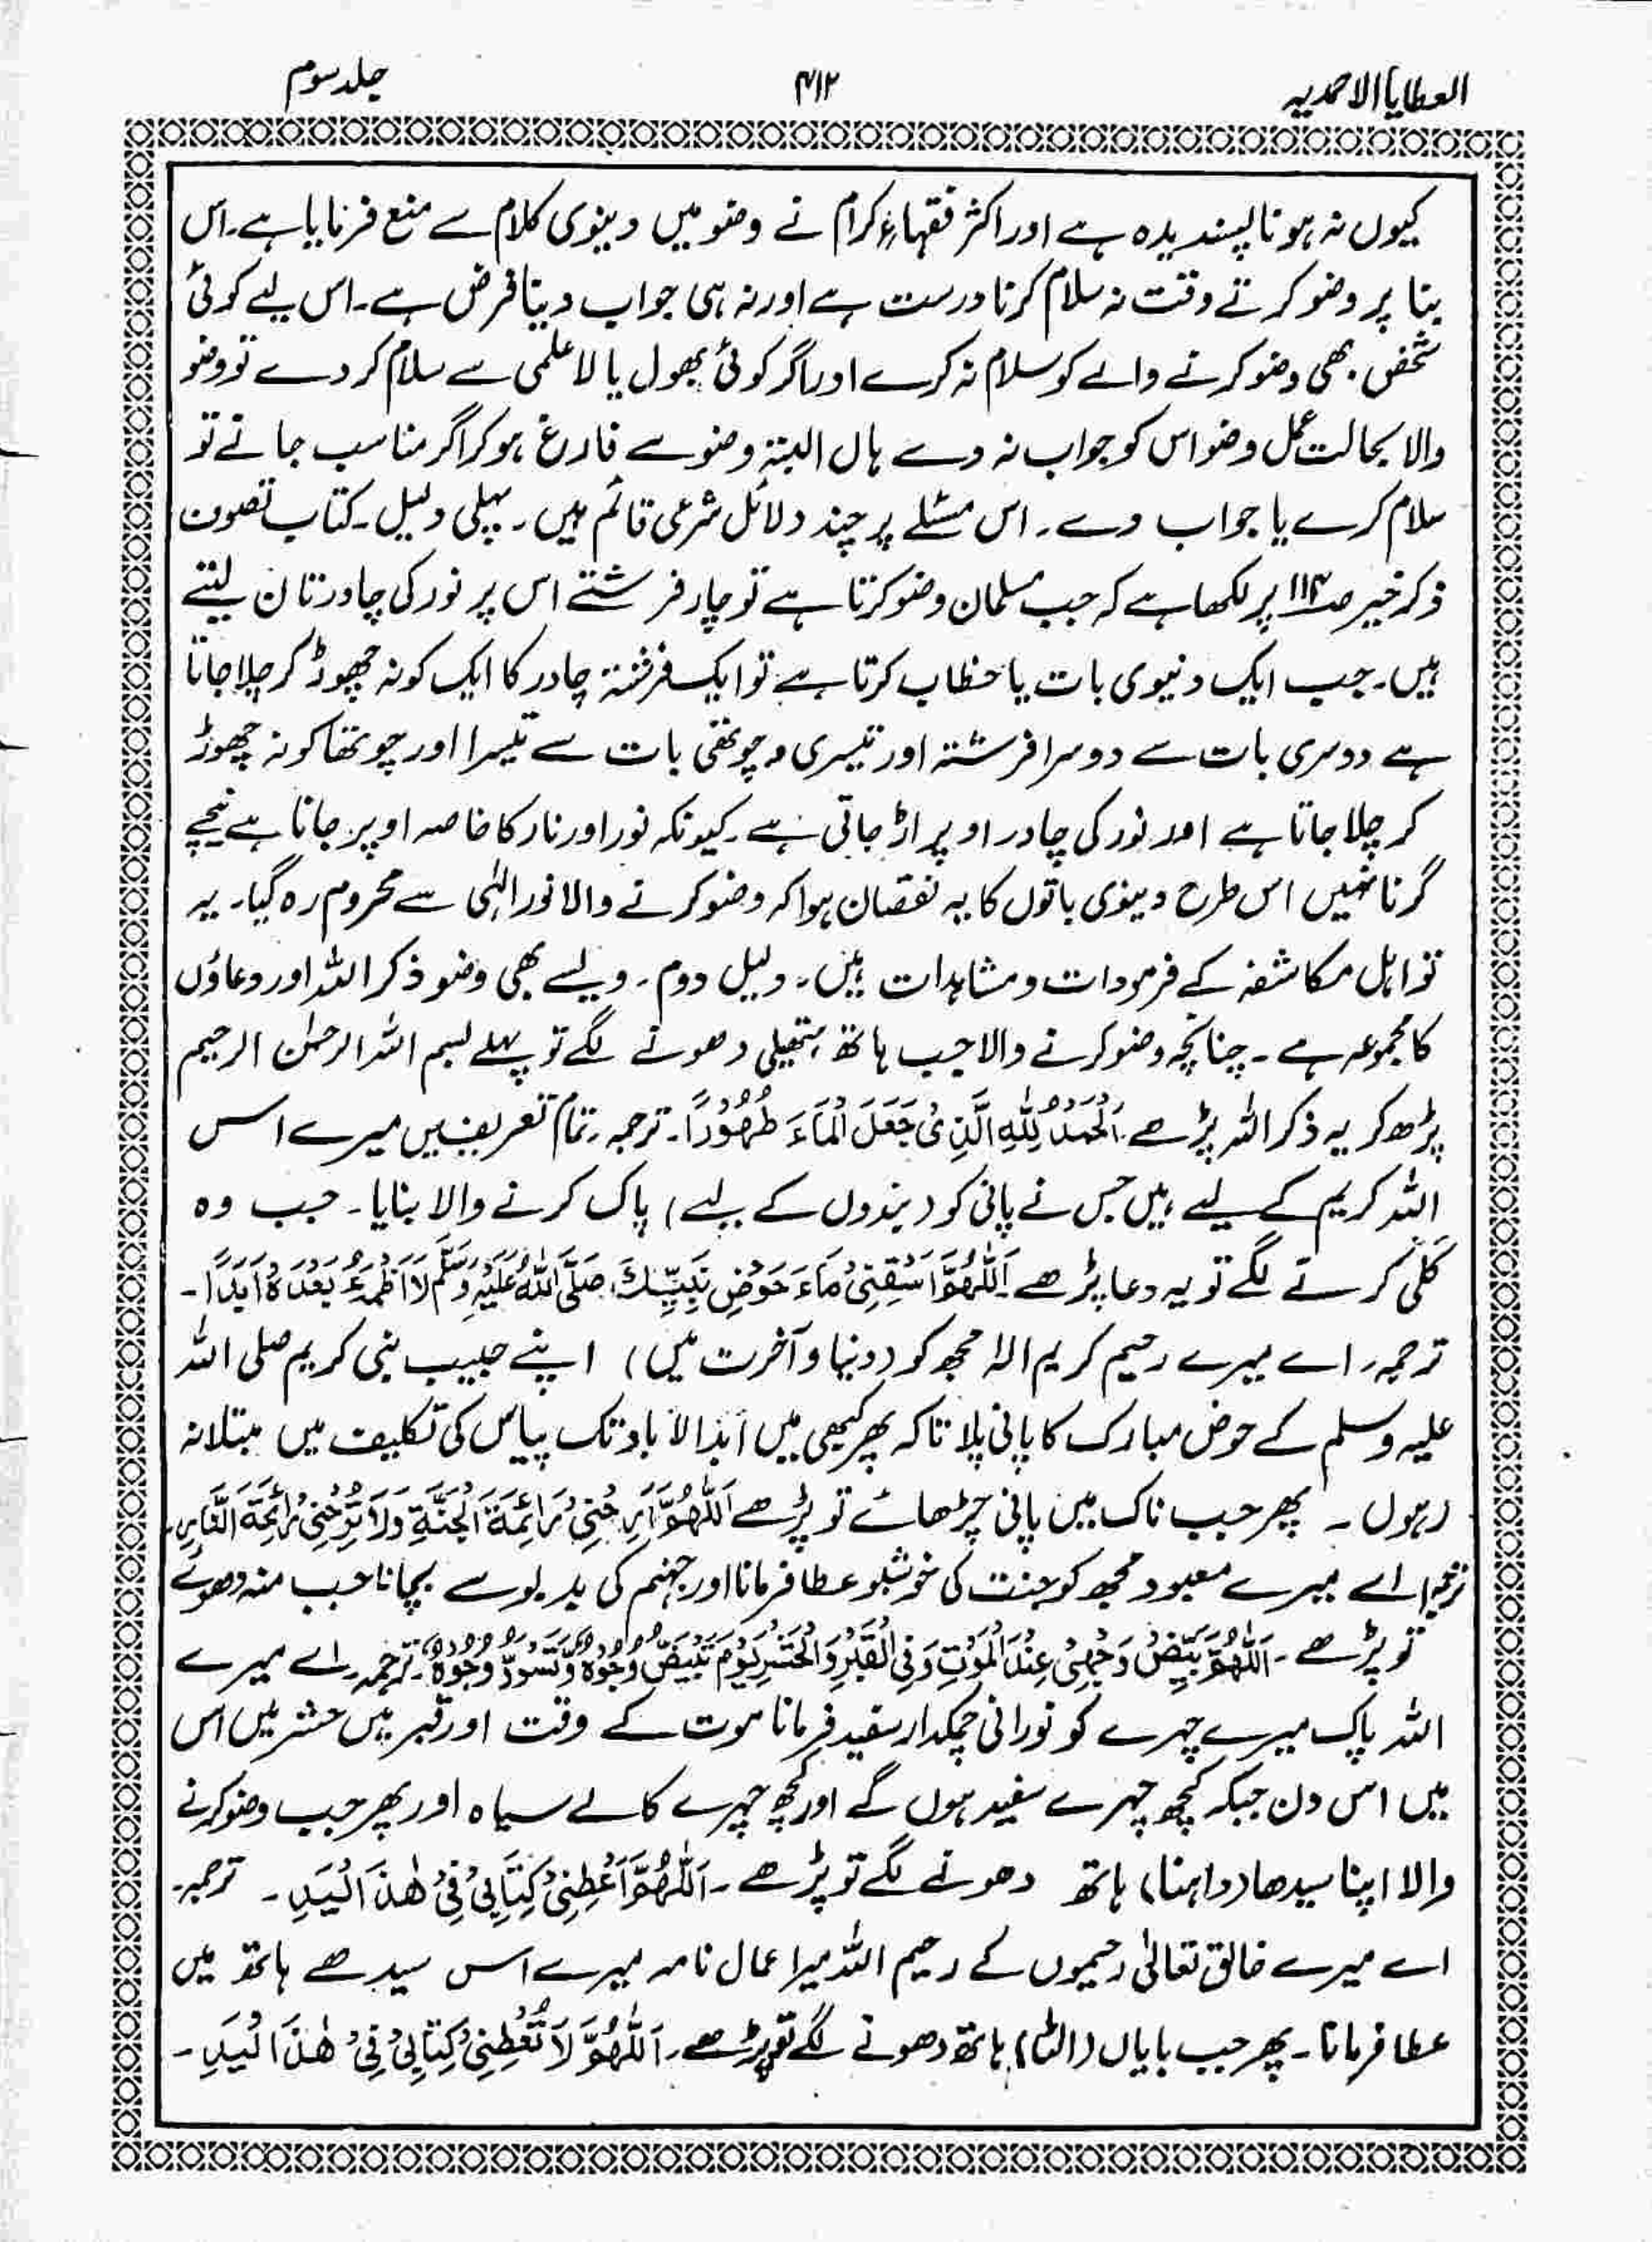 العطایا الاحمدیہ ۴۱۲ جلد سوم
کیوں نہ ہو ناپسندیدہ ہے اور اکثر فقہاءِ کرام نے وضو میں دینوی کلام سے منع فرنایا ہے۔ اس
بنا پر وضو کرتے وقت نہ سلام کرنا درست ہے اور نہ ہی جواب دینا فرض ہے۔ اس لیے کوئی
شخص بھی وضو کرنے والے کو سلام نہ کرے اور اگر کوئی بھول یا لاعلمی سے سلام کر دے تو وضو
والا بحالت عمل وضو اس کو جواب نہ دے ہاں البتہ وضو سے فارغ ہو کر اگر مناسب جانے تو
سلام کرے یا جواب دے۔ اس مسئلے پر چند دلائل شرعی قائم ہیں۔ پہلی دلیل۔ کتاب تصوت
ذکر خیر صـ۱۱۴ پر لکھا ہے کہ جب مسلمان وضو کرتا ہے تو چار فرشتے اس پر نور کی چادر تان لیتے
ہیں۔ جب ایک دنیوی بات یا خطاب کرتا ہے تو ایک فرشتہ چادر کا ایک کونہ چھوڑ کر چلا جاتا
ہے دوسری بات سے دوسرا فرشتہ اور تیسری و چوتھی بات سے تیسرا اور چوتھا کونہ چھوڑ
کر چلا جاتا ہے اور نور کی چادر اوپر اڑ جاتی ہے۔ کیونکہ نور اور نار کا خاصہ اوپر جانا ہے نیچے
گرنا نہیں اس طرح دینوی باتوں کا یہ نقصان ہوا کہ وضو کرنے والا نور الہٰی سے محروم رہ گیا۔ یہ
تو اہل مکاشفہ کے فرمودات و مشاہدات ہیں۔ دلیل دوم۔ ویسے بھی وضو ذکر اللہ اور دعاؤں
کا مجموعہ ہے۔ چنانچہ وضو کرنے والا جب ہاتھ ہتھیلی دھونے لگے تو پہلے بسم اللہ الرحمٰن الرحیم
پڑھ کر یہ ذکر اللہ پڑھے۔ اَلْحَمْدُ لِلّٰہِ الَّذِیْ جَعَلَ الْمَاءَ طُھُوْرًا۔ ترجمہ۔ تمام تعریفیں میرے اس
اللہ کریم کے لیے ہیں جس نے پانی کو (بندوں کے لیے) پاک کرنے والا بنایا۔ جب وہ
کُلّی کرنے لگے تو یہ دعا پڑھے اَللّٰھُمَّ اسْقِنِیْ مَاءَ حَوْضِ نَبِیِّكَ صَلَّی اللّٰہُ عَلَیْہِ وَسَلَّمَ لَا اَظْمَءُ بَعْدَہٗ اَبَدًا۔
ترجمہ۔ اے میرے رحیم کریم الہٰ مجھ کو (دنیا و آخرت میں) اپنے حبیب نبی کریم صلی اللہ
علیہ وسلم کے حوض مبارک کا پانی پلا تاکہ پھر کبھی میں ابدالآباد تک پیاس کی تکلیف میں مبتلا نہ
رہوں۔ پھر جب ناک میں پانی چڑھائے تو پڑھے اَللّٰھُمَّ اَرِحْنِیْ رَائِحَۃَ الْجَنَّۃِ وَلَا تُرِحْنِیْ رَائِحَۃَ النَّارِ۔
ترجمہ اے میرے معبود مجھ کو جنت کی خوشبو عطا فرمانا اور جہنم کی بدبو سے بچانا جب منہ دھوئے
تو پڑھے۔ اَللّٰھُمَّ بَیِّضْ وَجْھِیْ عِنْدَ الْمَوْتِ وَفِی الْقَبْرِ وَالْحَشْرِ یَوْمَ تَبْیَضُّ وُجُوْہٌ وَّتَسْوَدُّ وُجُوْہٌ۔ ترجمہ۔ اے میرے
اللہ پاک میرے چہرے کو نورانی چمکدار سفید فرمانا موت کے وقت اور قبر میں حشر میں اس
میں اس دن جبکہ کچھ چہرے سفید ہوں گے اور کچھ چہرے کالے سیاہ اور پھر جب وضو کرنے
والا اپنا سیدھا (داہنا) ہاتھ دھونے لگے تو پڑھے۔ اَللّٰھُمَّ اَعْطِنِیْ کِتَابِیْ فِیْ ھٰذَا الْیَدِ۔ ترجمہ۔
اے میرے خالق تعالیٰ رحیموں کے رحیم اللہ میرا عمال نامہ میرے اس سیدھے ہاتھ میں
عطا فرمانا۔ پھر جب بایاں (الٹا) ہاتھ دھونے لگے تو پڑھے۔ اَللّٰھُمَّ لَا تُعْطِنِیْ کِتَابِیْ فِیْ ھٰذَا الْیَدِ۔